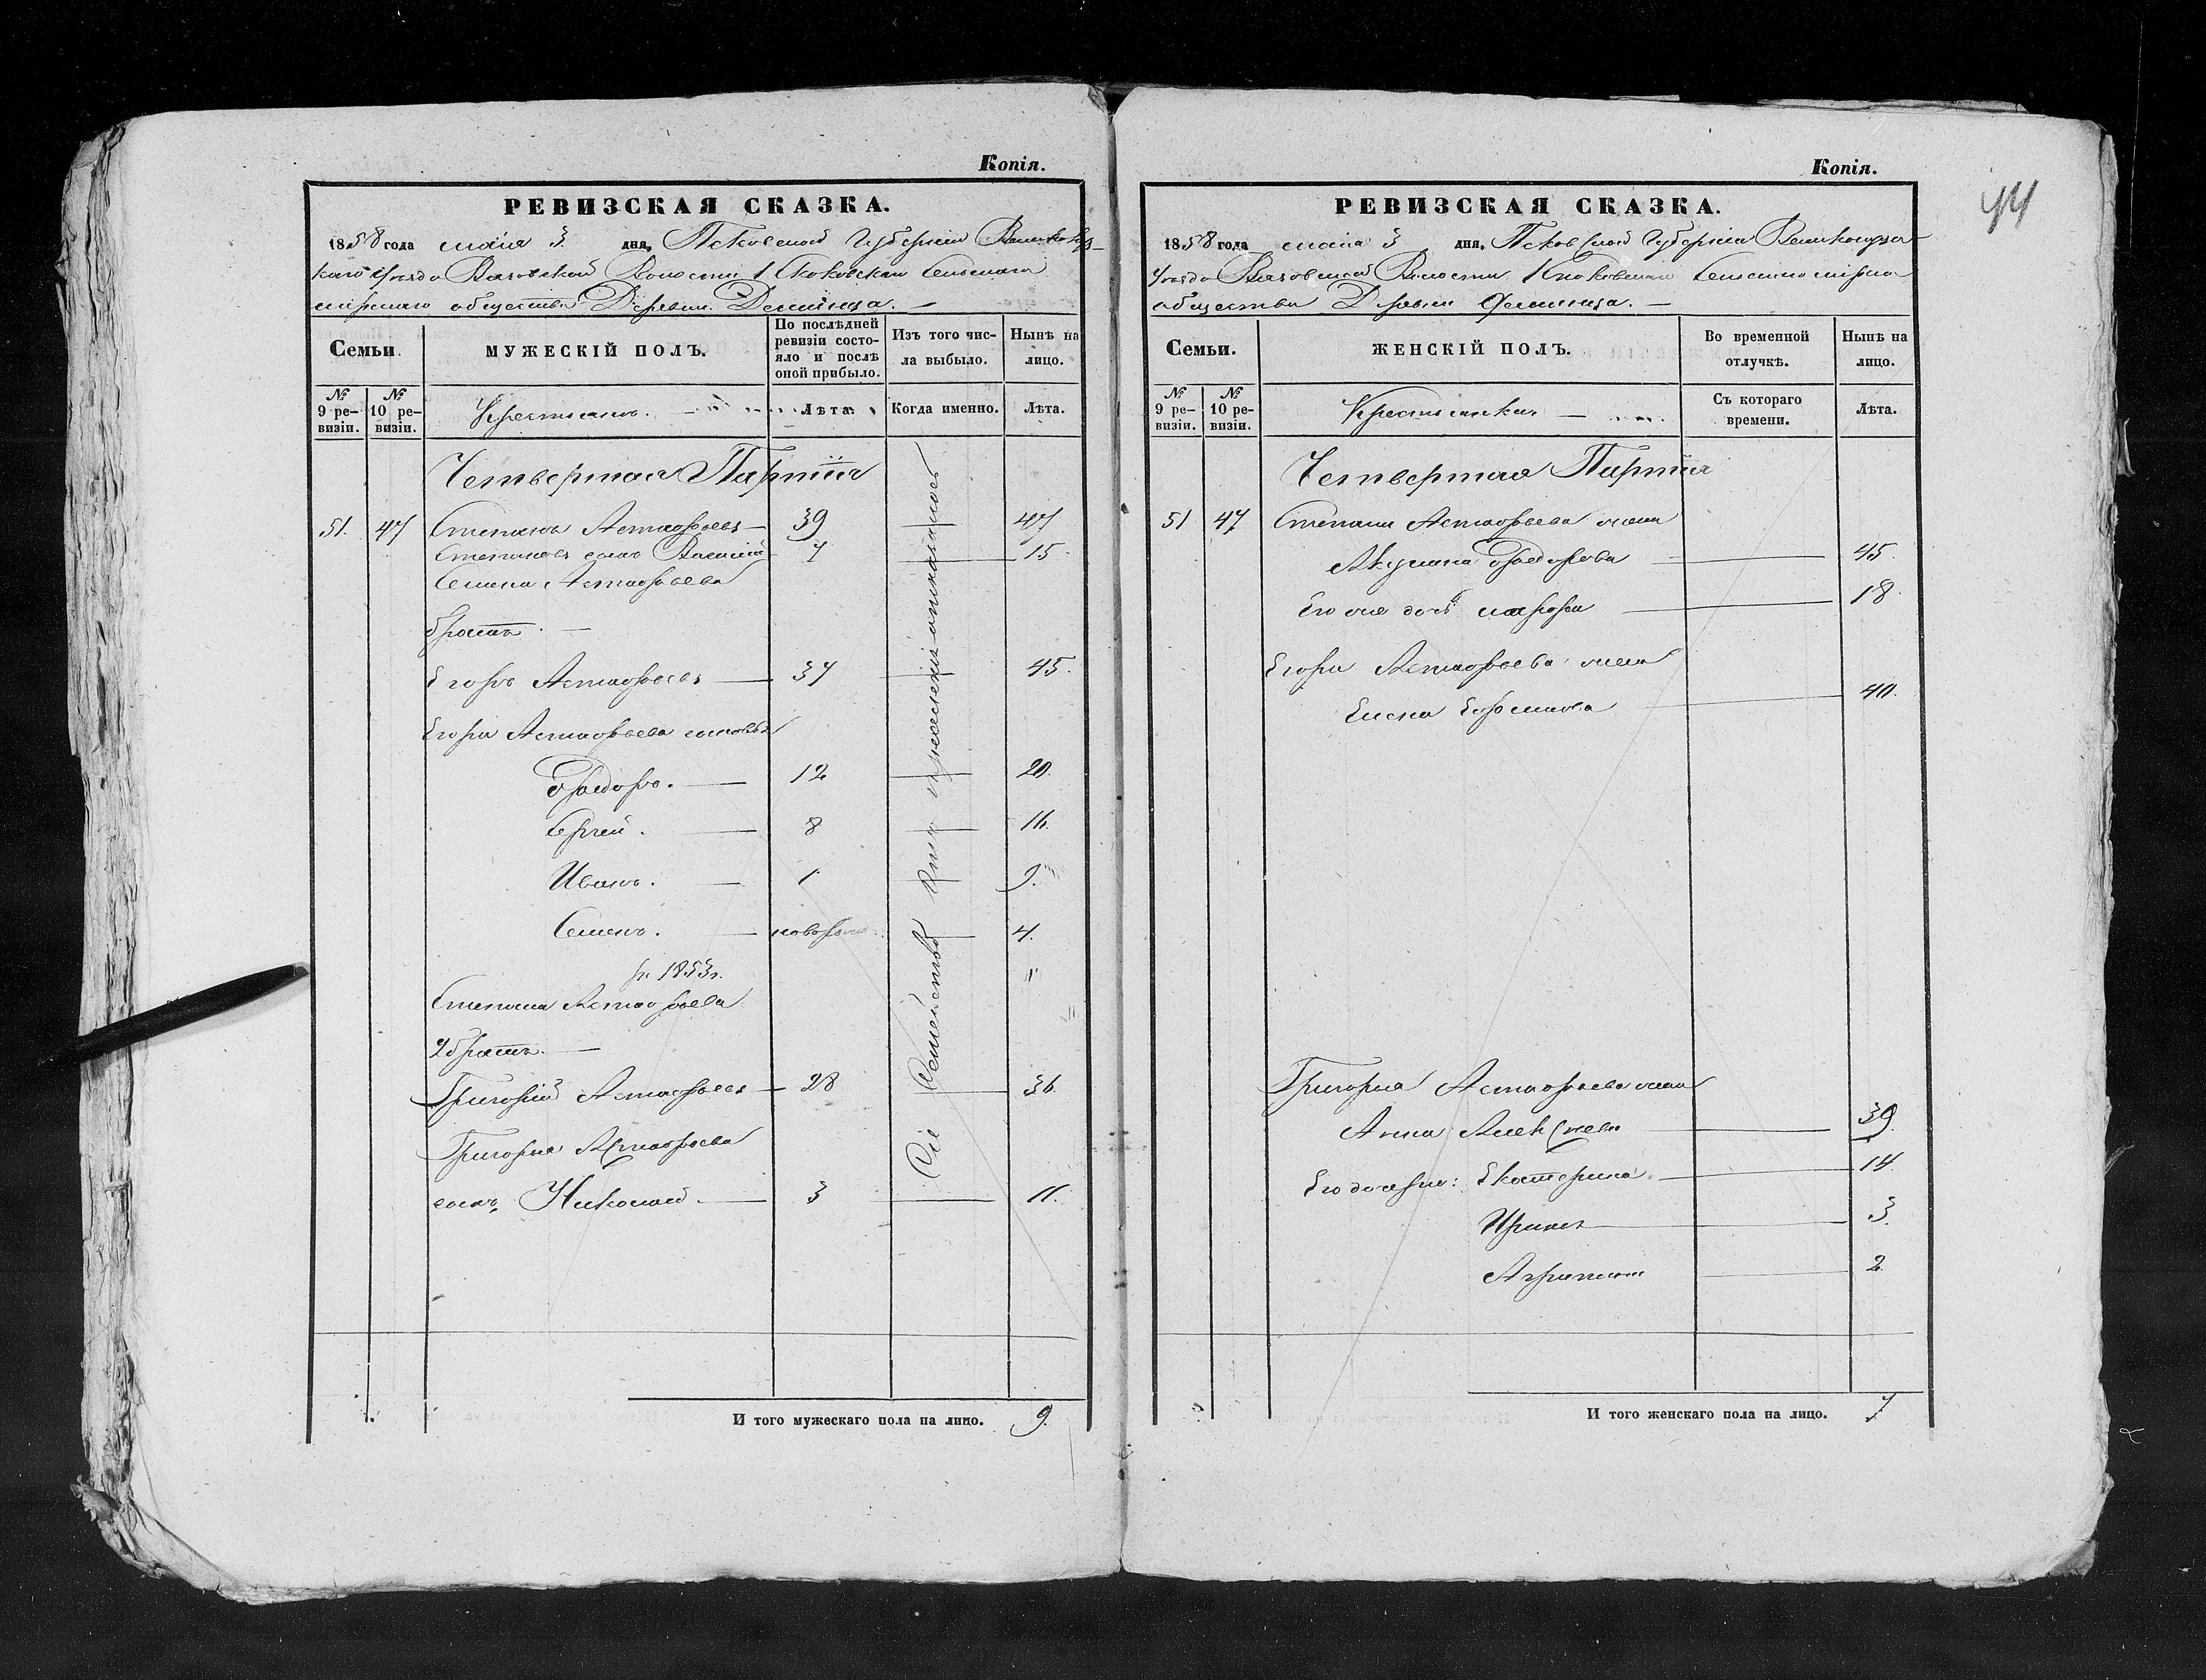 Копія.
РЕВИЗСКАЯ СКАЗКА.
1858 года маія 3 дня, Псковской Губерніи Великолуц-
каго Уѣзда Вязовской Волости Сельскаго
мірскаго общества Деревни
Семьи.
МУЖЕСКІЙ ПОЛЪ.
По послѣдней ревизіи состо-яло и послѣ оной прибыло.
Изъ того чис-ла выбыло.
Нынѣ на лицо.
№ 9 ре-визіи.
№ 10 ре-визіи.
Крестьянъ.
Лѣта.
Когда именно.
Лѣта.
Четвертая Партія
51. 47 Степанъ Астафьевъ 39 47
Степановъ сынъ Василій 7 15
Астафьева
братъ.
Егоръ Астафьевъ 37 45.
Егора Астафьева сыновья
Ѳадоръ. 12 20.
Сергей. 8 16.
Иванъ. 1 9.
Семенъ. 4.
1853г.
Степана Астафьева
2 братъ.
Григорій Астафьевъ 28 36.
Григорья Астафьева
сынъ, Николай 3 11.
Сіе Семейство
И того мужескаго пола на лицо. 9.
44
Копія.
РЕВИЗСКАЯ СКАЗКА.
1858 года маіа 3 дня, Псковской Губерніи
Уѣзда Вязовской Волости
общества
Семьи.
ЖЕНСКІЙ ПОЛЪ.
Во временной отлучкѣ.
Нынѣ на лицо.
№ 9 ре-визіи.
№ 10 ре-визіи.
Крестьянки
Съ котораго времени.
Лѣта.
Четвертая Партія
51 47 Степана Астафьева жена
Акулина Ѳадорова 45.
Его дочь 18.
Егора Астафьева жена
40.
Григорья Астафьева жена
Анна Алексѣева 39.
Его дочери: Екатерина 14.
Ирина 3.
2.
И того женскаго пола на лицо. 7